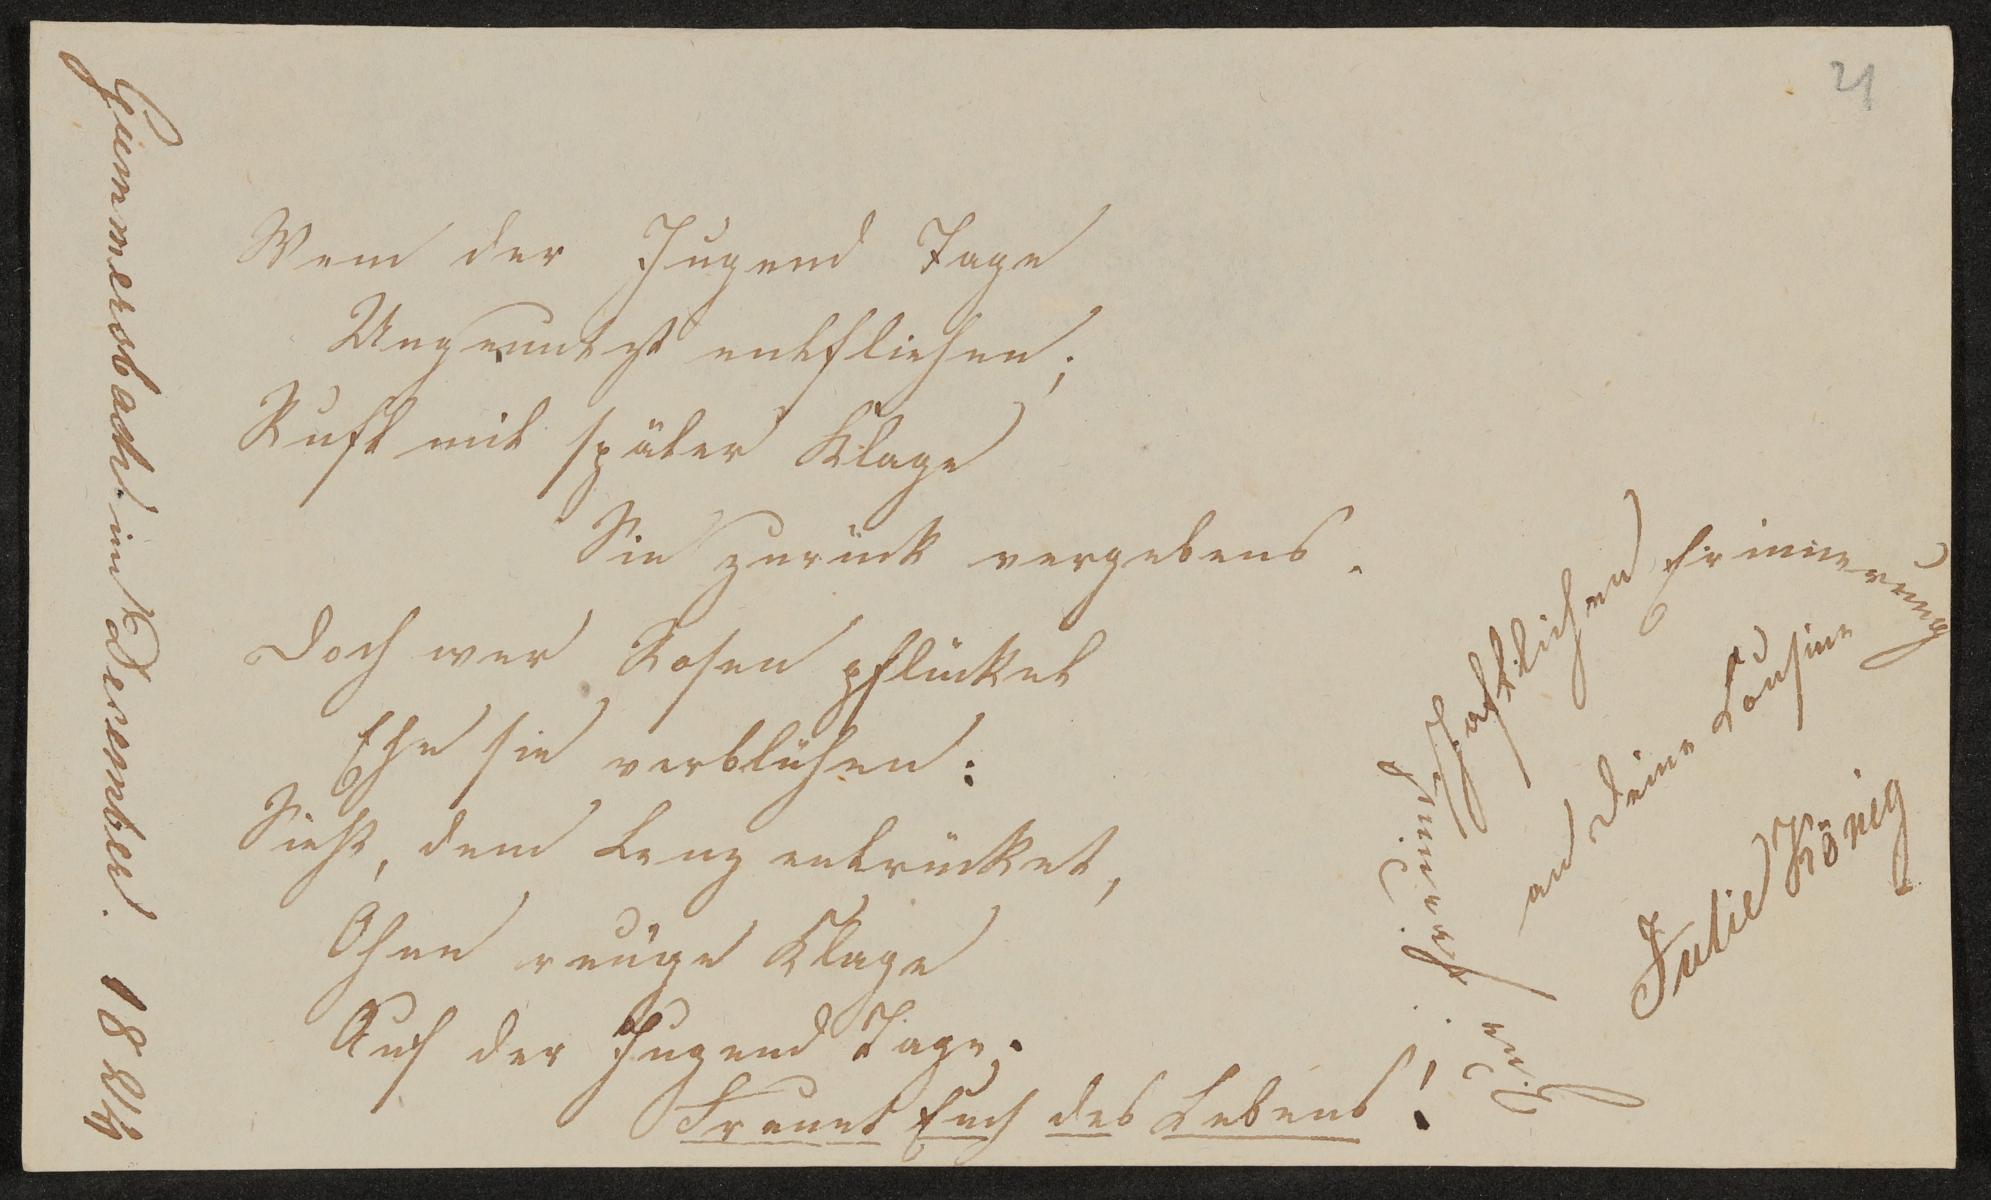 21
Wem der Jugend Tage
Ungenutzt entfliehen;
Ruft mit später Klage
Sie zurück vergebens.
Doch wer Rosen pflücket
Ehe sie verblühen:
Sieht, dem Lenz entrücket,
Ohne reuige Klage
Auf der Jugend Tage.
Freuet Euch des Lebens!
Zur
Erinnerung
an Deine Cousine
Julie König
Gummersbach im December. 1824